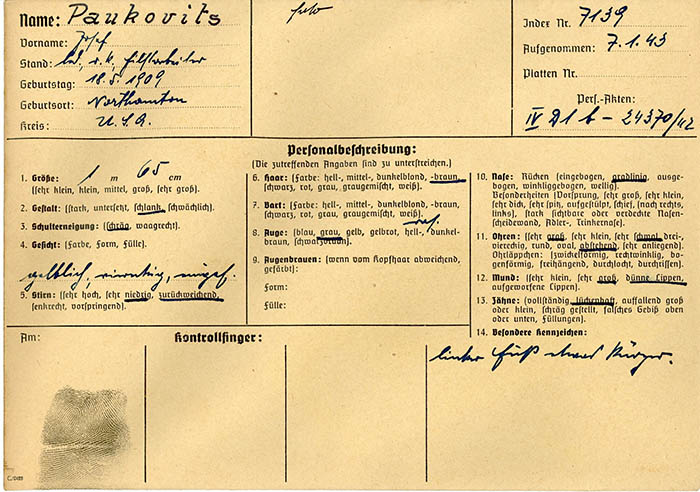 Name: Paukovits
Vorname: Josef
Stand: led, r.k, Hilfsarbeiter
Geburtstag: 18.5.1909
Geburtsort: Northamton
Kreis: U.S.A.
Index Nr. 7139
Aufgenommen: 7.1.43
Platten Nr.
Pers.-Akten:
IV D1 b - 24370/42
Personalbeschreibung:
(Die zutreffenden Angaben sind zu unterstreichen.)
1. Größe: 1 m 65 cm
(sehr klein, klein, mittel, groß, sehr groß).
2. Gestalt: (stark, untersetzt, schlank, schwächlich).
3. Schulterneigung: (schräg, waagrecht).
4. Gesicht: (Farbe, Form, Fülle).
gelblich, viereckig,
5. Stirn: (sehr hoch, sehr niedrig, zurückweichend,
senkrecht, vorspringend).
6. Haar: (Farbe: hell-, mittel-, dunkelblond, -braun,
schwarz, rot, grau, graugemischt, weiß).
7. Bart: (Farbe: hell-, mittel-, dunkelblond, -braun,
schwarz, rot, grau, graugemischt, weiß).
ras.
8. Auge: (blau, grau, gelb, gelbrot, hell-, dunkel-
braun, schwarzbraun).
9. Augenbrauen: (wenn vom Kopfhaar abweichend,
gefärbt):
Form:
Fülle:
10. Nase: Rücken (eingebogen, gradlinig, ausge-
bogen, winkliggebogen, wellig).
Besonderheiten (Vorsprung, sehr groß, sehr klein,
sehr dick, sehr spitz, aufgestülpt, schief, (nach rechts,
links), stark sichtbare oder verdeckte Nasen-
scheidewand, Adler-, Trinkernase).
11. Ohren: (sehr groß, sehr klein, sehr schmal, drei-
viereckig, rund, oval, abstehend, sehr anliegend).
Ohrläppchen: (zwickelförmig, rechtwinklig, bo-
genförmig, freihängend, durchlocht, durchrissen).
12. Mund: (sehr klein, sehr groß, dünne Lippen,
aufgeworfene Lippen).
13. Zähne: (vollständig, lückenhaft, auffallend groß
oder klein, schräg gestellt, falsches Gebiß oben
oder unten, Füllungen).
14. Besondere Kennzeichen:
linker Fuß etwas kürzer.
Am:
Kontrollfinger: